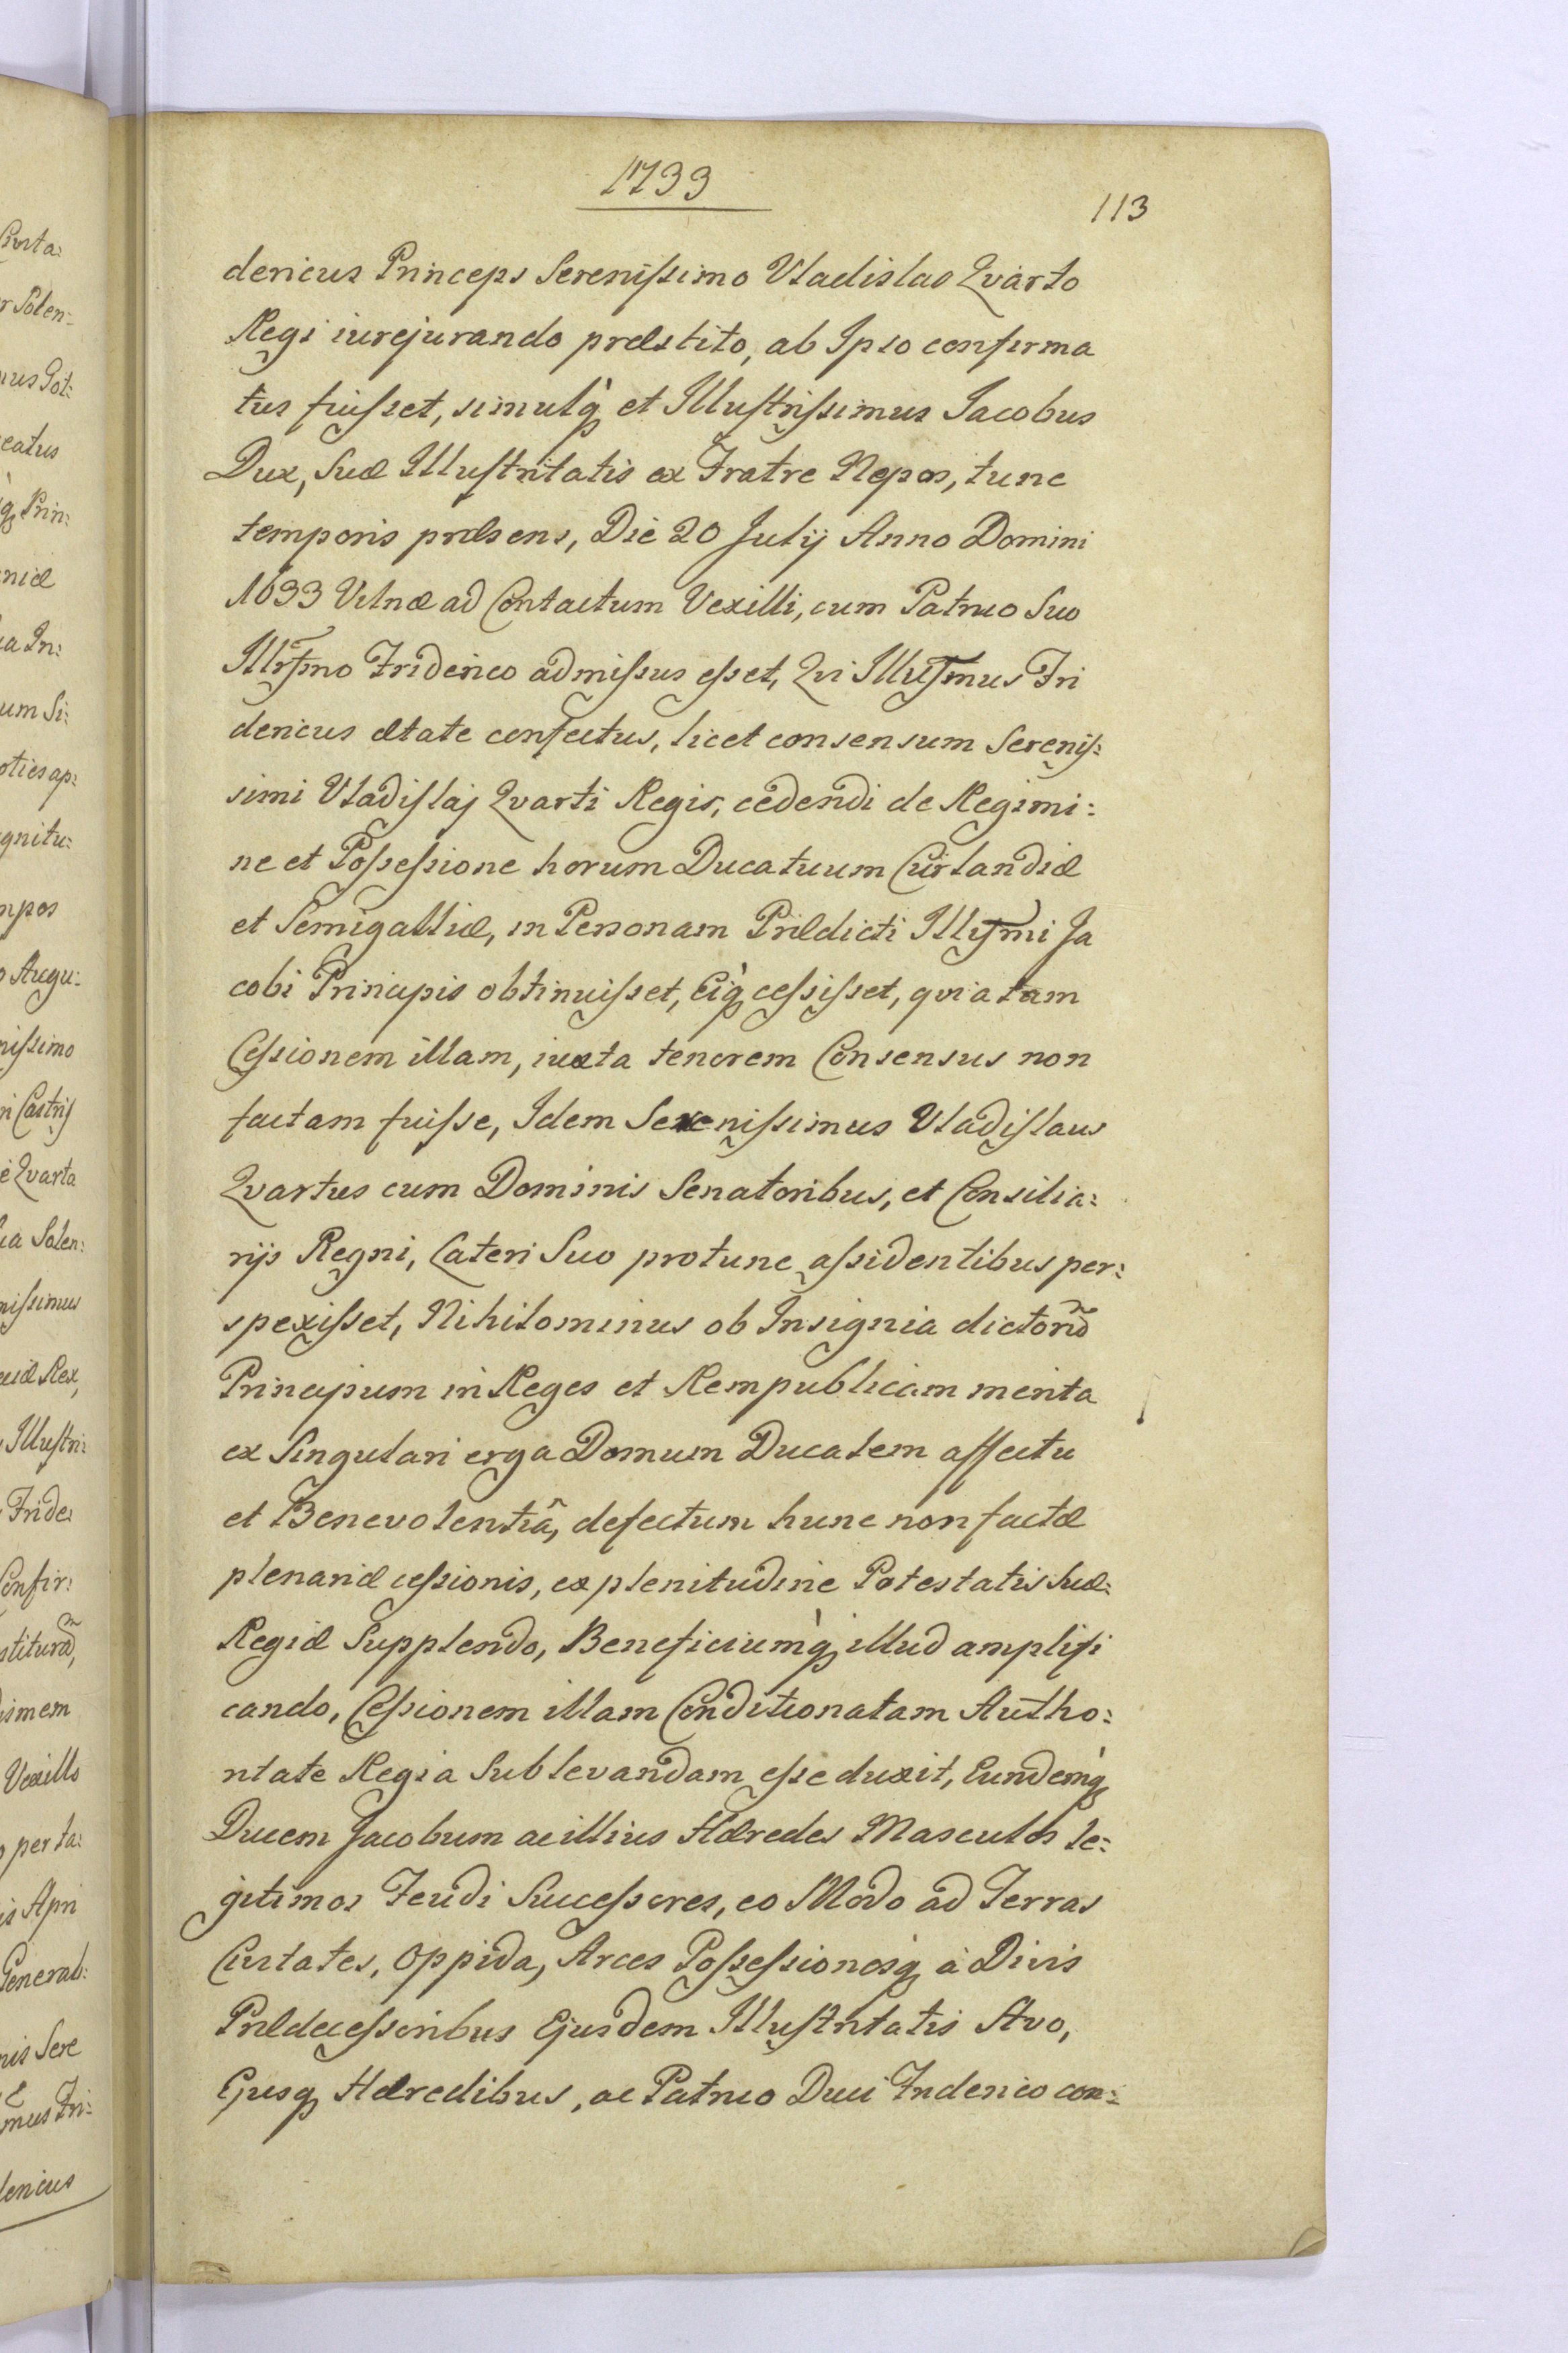 1733
113
dericus Princeps Serenissimo Vladislao Qvarto
Regi iurejurando præstito, ab Ipso confirma
tus fuisset, simulq; et Illustrissimus Jacobus
Dux, Suæ Illustritatis ex Fratre Nepos, tunc
temporis præsens, Die 20 Julij Anno Domini
1633 Vilnæ ad Contactum Vexilli, cum Patruo Suo
Illrsmo Friderico admissus esset, Qvi Illusmus Fri
dericus ætate confectus, licet consensum Serenis:
simi Vladislaj Qvarti Regis, cedendi de Regimi:
ne et Possessione horum Ducatuum Curlandiæ
et Semigalliæ, in Personam Prædicti Illusmi Ja
cobi Principis obtinuisset, Eiq; cessisset, qvia tam
Cessionem illam, iuxta tenorem Consensus non
factam fuisse, Idem Serenissimus Vladislaus
Qvartus cum Dominis Senatoribus, et Consilia:
rijs Regni, Lateri Suo protunc assidentibus per:
spexisset, Nihilominus ob Insignia dictorũ
Principum in Reges et Rempublicam merita
ex Singulari erga Domum Ducalem affectu
et Benevolentiâ, defectum hunc non factæ
plenariæ cessionis, ex plenitudine Potestatis Suæ
Regiæ Supplendo, Beneficiumq; illud amplifi
cando, Cessionem illam Conditionatam Autho:
ritate Regia Sublevandam esse duxit, Eundemq;
Ducem Jacobum ac illius Hæredes Masculos le:
gitimos Feudi Successores, eo Modo ad Terras
Civitates, Oppida, Arces Possessionesq; à Divis
Prædecessoribus Ejusdem Illustritatis Avo,
Ejusq; Hæredibus, ac Patruo Duci Friderico con:
Illustri:
Fride:
Confir:
Vexillo
Qvarta